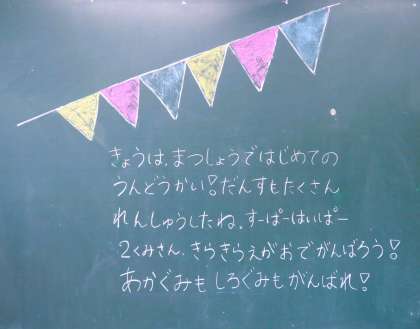 きょうは、まつしょうではじめての
うんどうかい!だんすもたくさん
れんしゅうしたね。すーぱーはいぱー
2くみさん、きらきらえがおでがんばろう!
あかぐみもしろぐみもがんばれ!